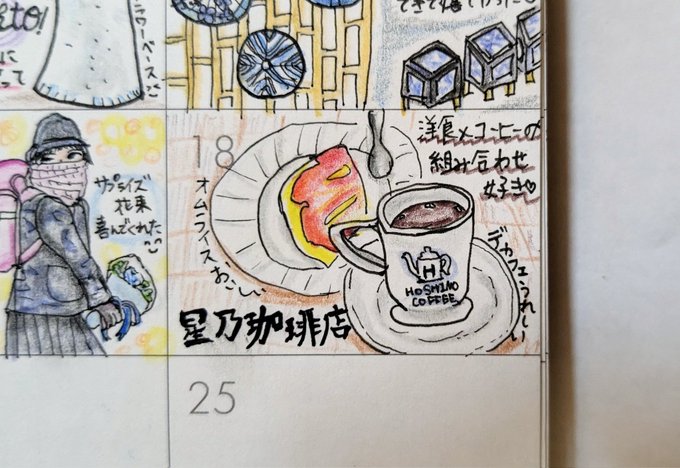 eto!
ラワーベース
に
って
18
サプライズ
花束
喜んでくれた
洋食×コーヒーの
組み合わせ
好き♡
オムライス
デカフェうれしい
H
HOSHINO
COFFEE
星乃珈琲店
25